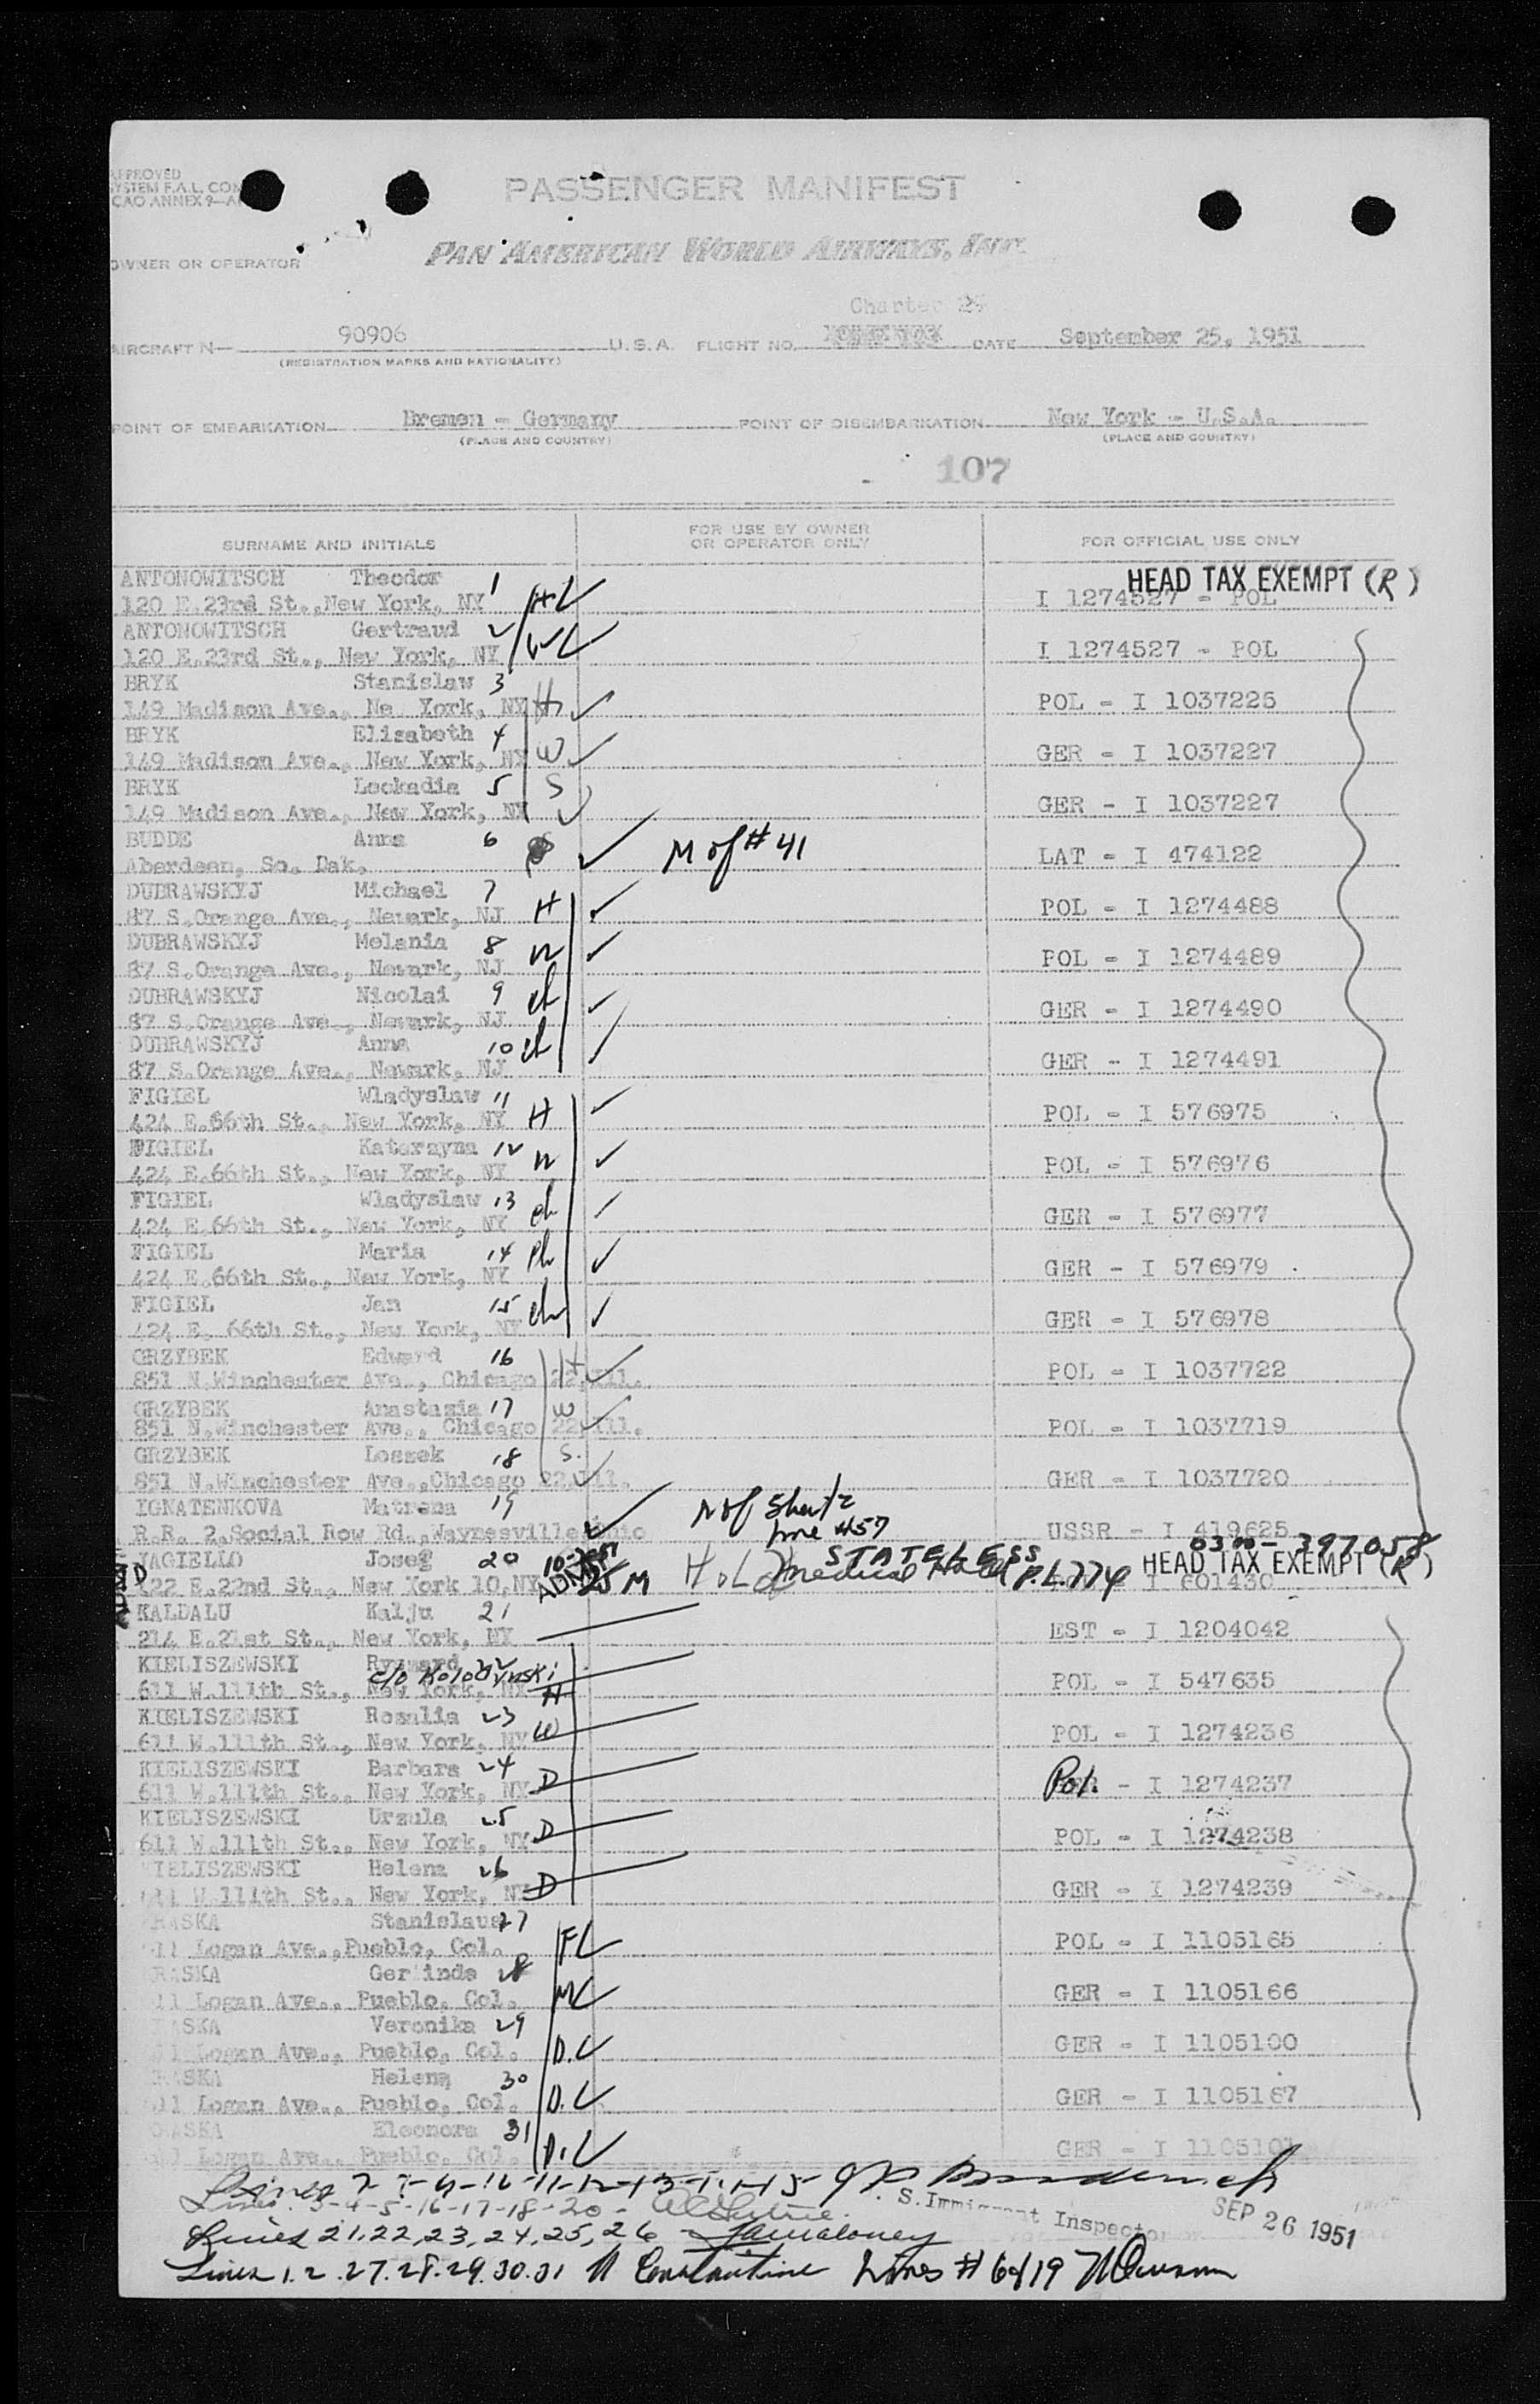 PASSENGER MANIFEST
OWNER OR OPERATOR PAN AMERICAN WORLD AIRWAYS, INC.
Charter
AIRCRAFT N— 90906 U.S.A. FLIGHT NO. DATE September 25, 1951
(REGISTRATION MARKS AND NATIONALITY)
POINT OF EMBARKATION Bremen - Germany POINT OF DISEMBARKATION New York - U.S.A.
(PLACE AND COUNTRY) (PLACE AND COUNTRY)
107
SURNAME AND INITIALS FOR USE BY OWNER OR OPERATOR ONLY FOR OFFICIAL USE ONLY
HEAD TAX EXEMPT (R)
ANTONOWITSCH Theodor 1
120 E.23rd St.,New York, NY H I 1274527 - POL
ANTONOWITSCH Gertraud 2
120 E.23rd St., New York, NY W I 1274527 - POL
BRYK Stanislaw 3
149 Madison Ave., Ne York, NY H POL - I 1037225
BRYK Elisabeth 4
149 Madison Ave., New York, NY W GER - I 1037227
BRYK Leokadia 5 S
149 Madison Ave., New York, NY GER - I 1037227
BUDDE Anna 6
Aberdeen, So. Dak. M of # 41 LAT - I 474122
DUBRAWSKYJ Michael 7
87 S.Orange Ave., Newark, NJ H POL - I 1274488
DUBRAWSKYJ Melania 8
87 S.Orange Ave., Newark, NJ W POL - I 1274489
DUBRAWSKYJ Nicolai 9
87 S.Orange Ave., Newark, NJ ch GER - I 1274490
DUBRAWSKYJ Anna 10 ch
87 S.Orange Ave., Newark, NJ GER - I 1274491
FIGIEL Wladyslaw 11
424 E.66th St., New York, NY H POL - I 576975
FIGIEL Katarzyna 12
424 E.66th St., New York, NY W POL - I 576976
FIGIEL Wladyslaw 13
424 E.66th St., New York, NY ch GER - I 576977
FIGIEL Maria 14 ch
424 E.66th St., New York, NY GER - I 576979
FIGIEL Jan 15 ch
424 E. 66th St., New York, NY GER - I 576978
GRZYBEK Edward 16 H
851 N.Winchester Ave., Chicago 22,Ill. POL - I 1037722
GRZYBEK Anastazia 17 W
851 N.Winchester Ave., Chicago 22,Ill. POL - I 1037719
GRZYBEK Leszek 18 S.
851 N.Winchester Ave.,Chicago 22,Ill. GER - I 1037720
IGNATENKOVA Matrena 19 of Sheet 2
R.R. 2,Social Row Rd.,Waynesville,Ohio line #57 USSR - I 419625
JAGIELLO 20 STATELESS HEAD TAX EXEMPT (R)
E.22nd St., New York 10,NY ADM M Hold medical Hold P.L.774 I 601430
KALDALU Kalju 21
214 E.21st St., New York, NY EST - I 1204042
KIELISZEWSKI Ryszard 22
c/o Kolodynski
611 W.111th St., New York, NY H POL - I 547635
KIELISZEWSKI Rozalia 23
611 W.111th St., New York, NY W POL - I 1274236
KIELISZEWSKI Barbara 24
611 W.111th St., New York, NY D Pol. - I 1274237
KIELISZEWSKI Urzula 25
611 W.111th St., New York, NY D POL - I 1274238
KIELISZEWSKI Helena 26
611 W.111th St., New York, NY D GER - I 1274239
RASKA Stanislaus 27
Logan Ave.,Pueblo, Col. F POL - I 1105165
RASKA Gerlinde 28
11 Logan Ave., Pueblo, Col. M GER - I 1105166
ASKA Veronika 29
11 Logan Ave., Pueblo, Col. D. GER - I 1105100
RASKA Helena 30
11 Logan Ave., Pueblo, Col. D. GER - I 1105167
RASKA Eleonora 31
11 Logan Ave., Pueblo, Col. D. GER - I
Lines 3-4-5-16-17-18-20 -
S. Immigrant Inspector SEP 26 1951
Lines 21,22,23,24,25,26
Lines 1.2.27.28.29.30.31 N Constantine Lines # 6&19